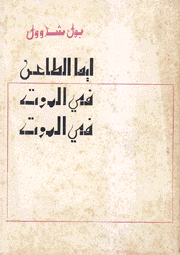 بول شاوول
ايها الطاعن
في الموت
في الموت